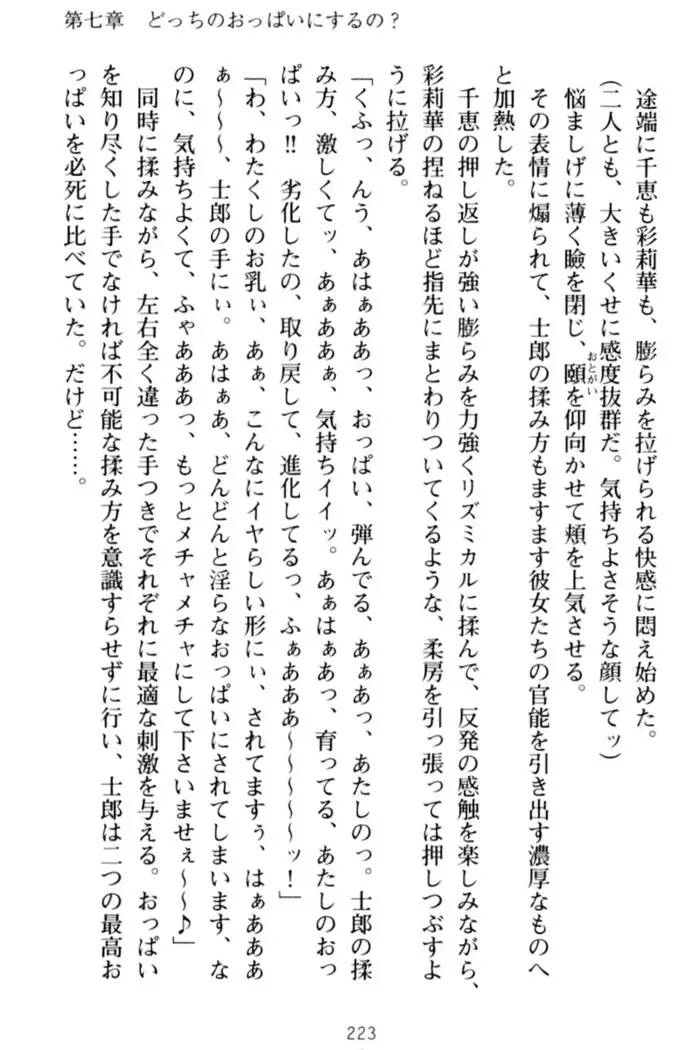 第七章　どっちのおっぱいにするの？
途端に千恵も彩莉華も、膨らみを拉げられる快感に悶え始めた。
(二人とも、大きいくせに感度抜群だ。気持ちよさそうな顔してッ)
悩ましげに薄く瞼を閉じ、頤を仰向かせて頬を上気させる。
おとがい
その表情に煽られて、士郎の揉み方もますます彼女たちの官能を引き出す濃厚なものへ
と加熱した。
千恵の押し返しが強い膨らみを力強くリズミカルに揉んで、反発の感触を楽しみながら、
彩莉華の捏ねるほど指先にまとわりついてくるような、柔房を引っ張っては押しつぶすよ
うに拉げる。
「くふっ、んう、あはぁああっ、おっぱい、弾んでる、あぁあっ、あたしのっ。士郎の揉
み方、激しくてッ、あぁああぁ、気持ちイイッ。あぁはぁあっ、育ってる、あたしのおっ
ぱいっ‼　劣化したの、取り戻して、進化してるっ、ふぁあああ～～～～～ッ！」
「わ、わたくしのお乳ぃ、あぁ、こんなにイヤらしい形にぃ、されてますぅ、はぁあああ
ぁ～～～、士郎の手にぃ。あはぁあ、どんどんと淫らなおっぱいにされてしまいます、な
のに、気持ちよくて、ふゃあああっ、もっとメチャメチャにして下さいませぇ～～♪」
同時に揉みながら、左右全く違った手つきでそれぞれに最適な刺激を与える。おっぱい
を知り尽くした手でなければ不可能な揉み方を意識すらせずに行い、士郎は二つの最高お
っぱいを必死に比べていた。だけど……。
223